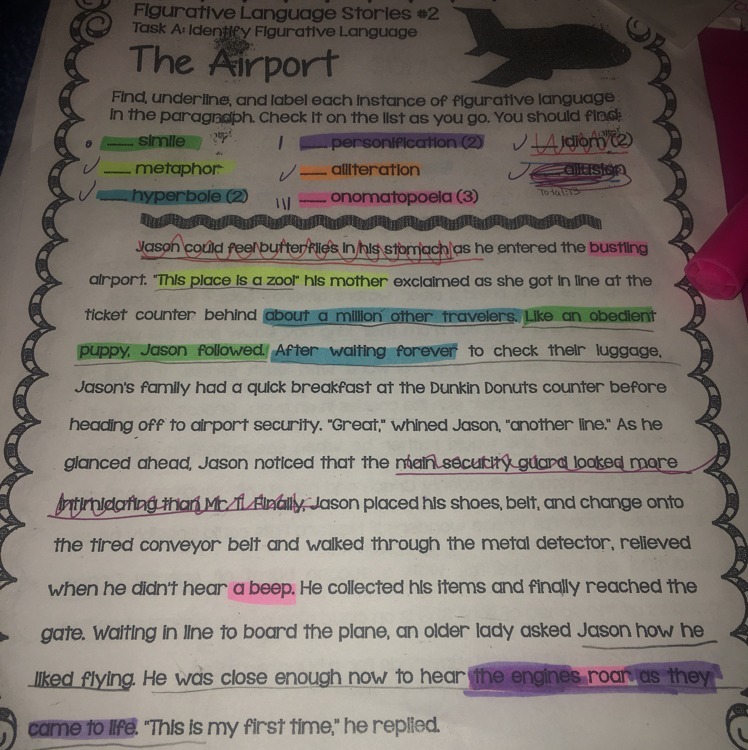 Figurative Language Stories #2
Task A: Identify Figurative Language
The Airport
Find, underline, and label each instance of figurative language
in the paragraph. Check it on the list as you go. You should find:
___ simile ___ personification (2) ___ idiom (2)
___ metaphor ___ alliteration ___ allusion
___ hyperbole (2) ___ onomatopoeia (3)
Jason could feel butterflies in his stomach as he entered the bustling
airport. "This place is a zoo!" his mother exclaimed as she got in line at the
ticket counter behind about a million other travelers. Like an obedient
puppy, Jason followed. After waiting forever to check their luggage,
Jason's family had a quick breakfast at the Dunkin Donuts counter before
heading off to airport security. "Great," whined Jason, "another line." As he
glanced ahead, Jason noticed that the main security guard looked more
intimidating than Mr. T. Finally, Jason placed his shoes, belt, and change onto
the tired conveyor belt and walked through the metal detector, relieved
when he didn't hear a beep. He collected his items and finally reached the
gate. Waiting in line to board the plane, an older lady asked Jason how he
liked flying. He was close enough now to hear the engines roar as they
came to life. "This is my first time," he replied.